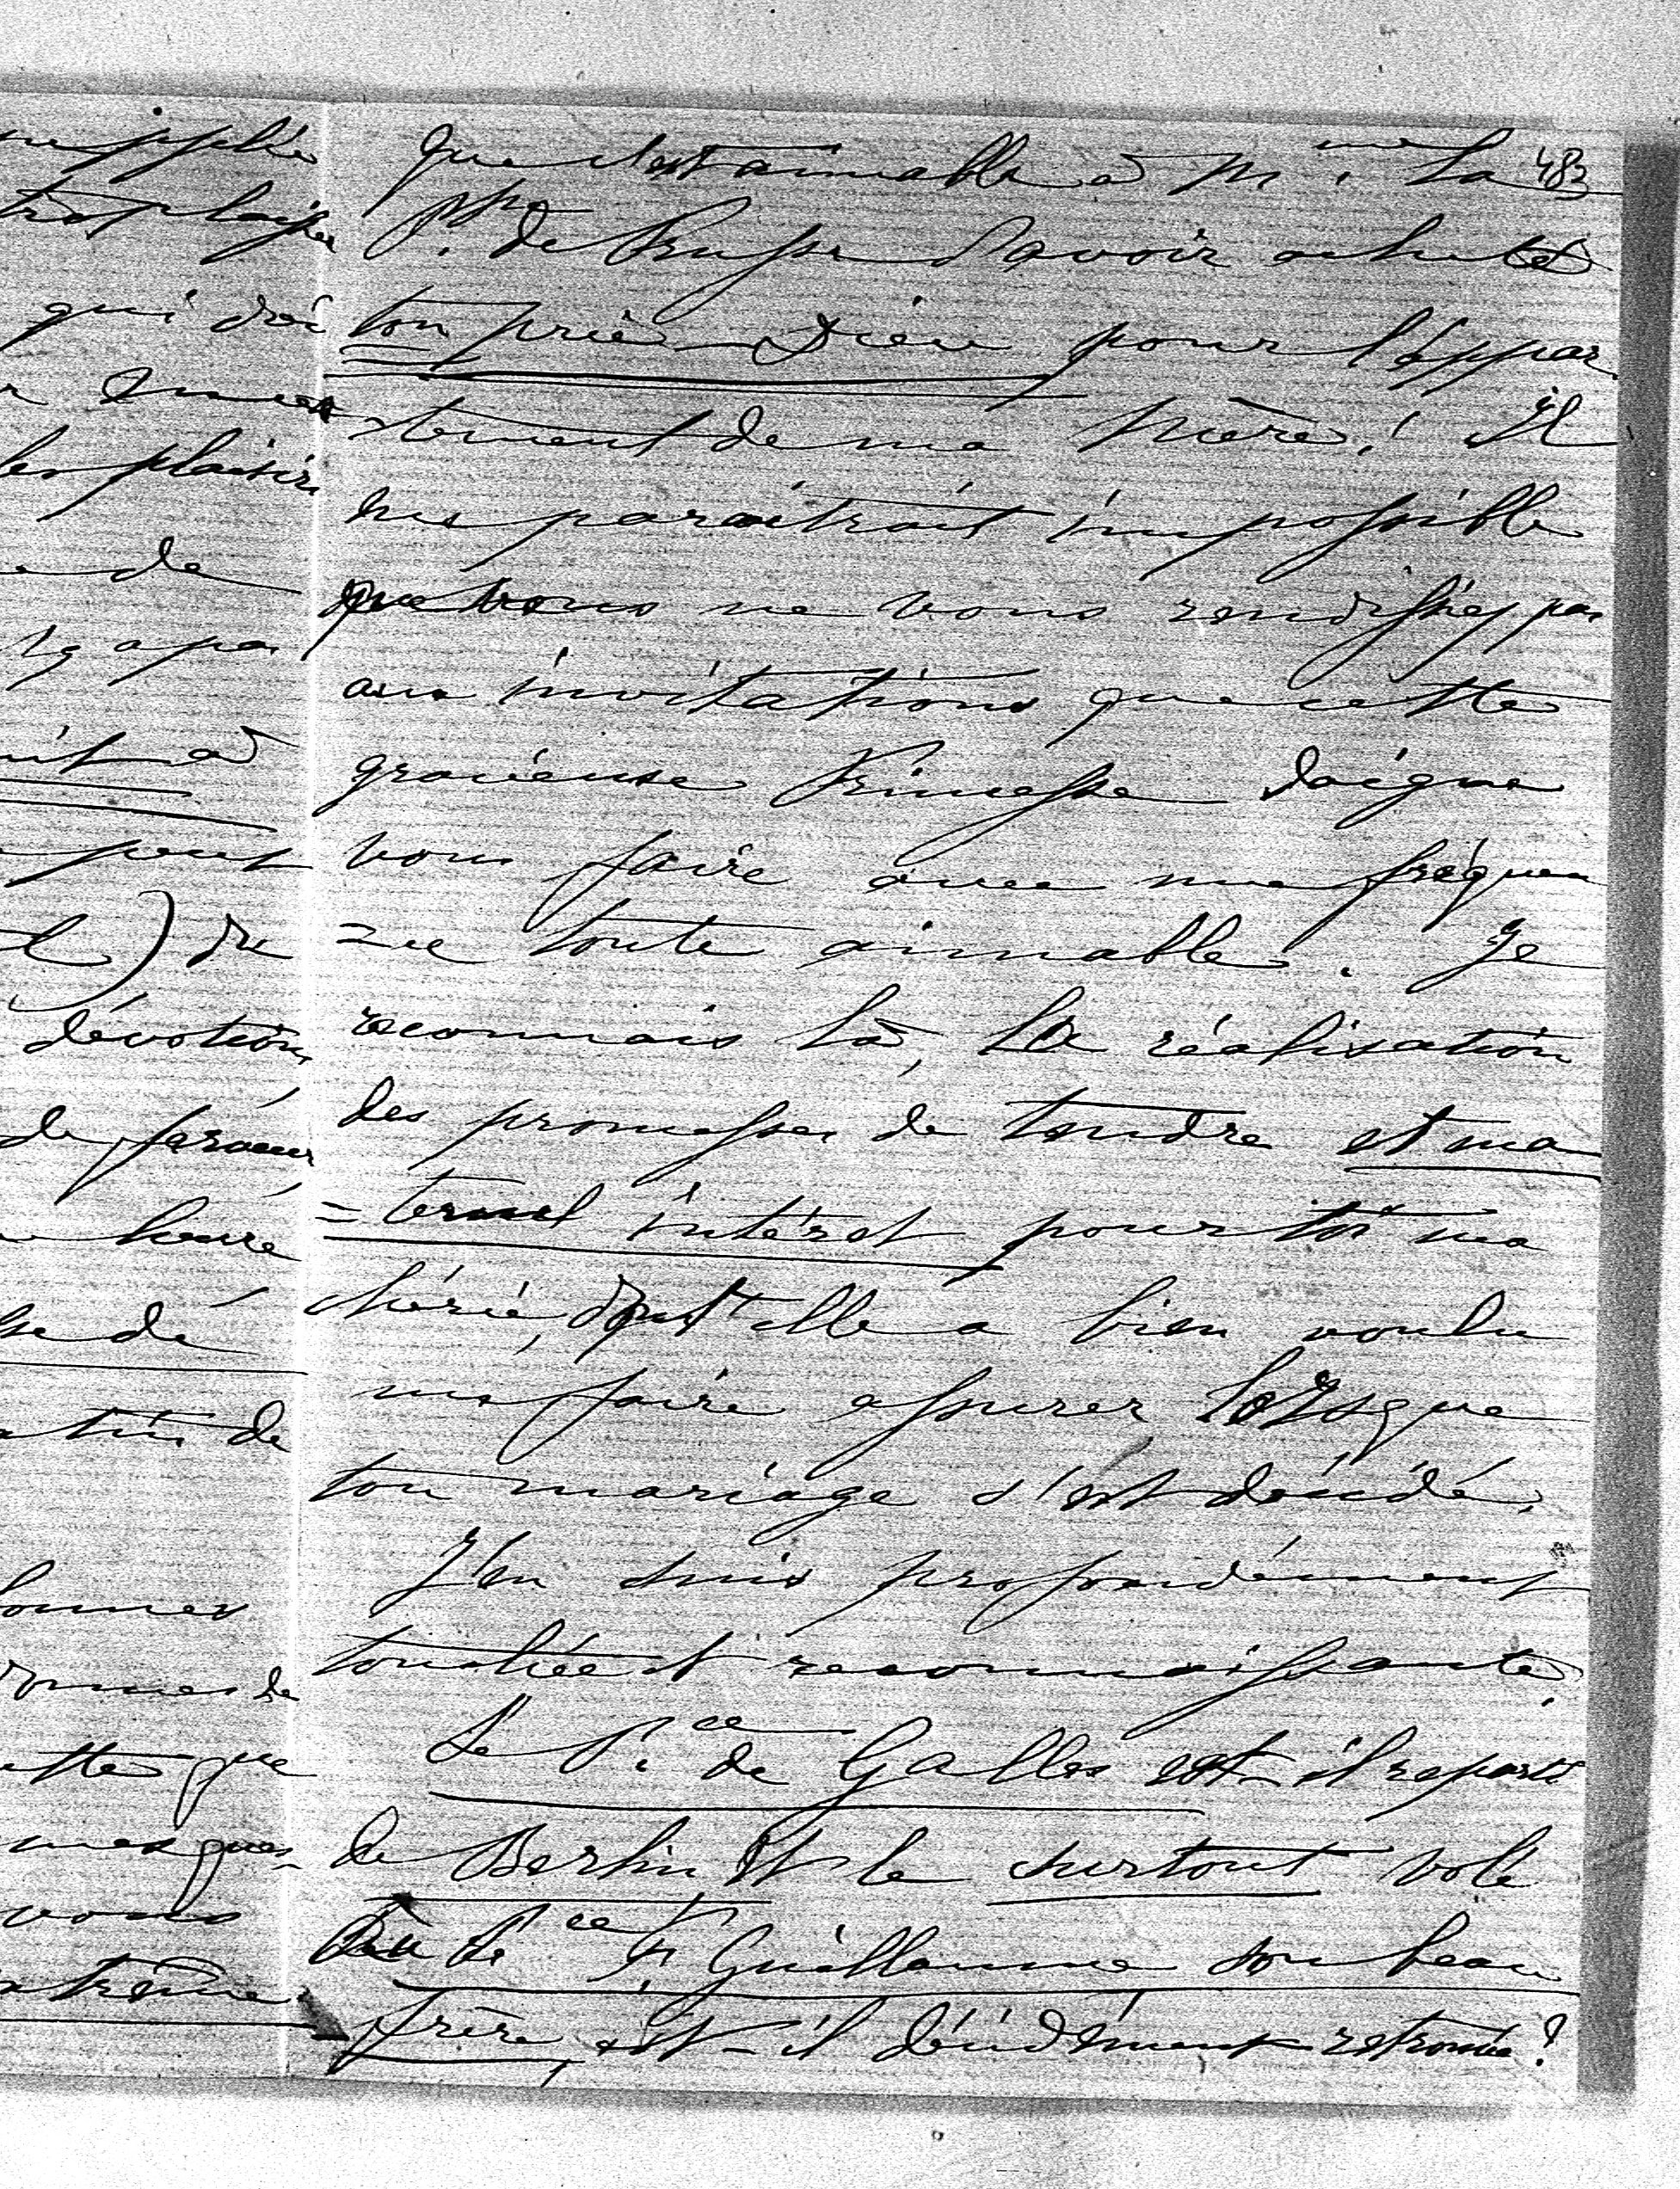 483
que c'est aimable à Mme. la
Psse. de Prusse d'avoir acheté
ton prie-Dieu pour l'appar
-tement de ma Mère! Il
me paraitrait impossible
que vous ne vous rendissiez pas
aux invitations que cette
gracieuse Princesse daigne
vous faire avec une fréquen
=ce toute aimable. Je
reconnais là, la réalisation
des promesses de tendre et ma
=ternel intérêt pour toi ma
chérie, dont elle a bien voulu
me faire assurer lorsque
ton mariage s'est décidé.
J'en suis profondément
touchée et reconnaissante.
Le Pce. de Galles est-il reparti
de Berlin et le surtout volé
au Pce F. Guillaume son beau
frère, est-il décidément retrouvé?
qui
plaisir
de
à
du
dévotion
de
heure
de
que
vous